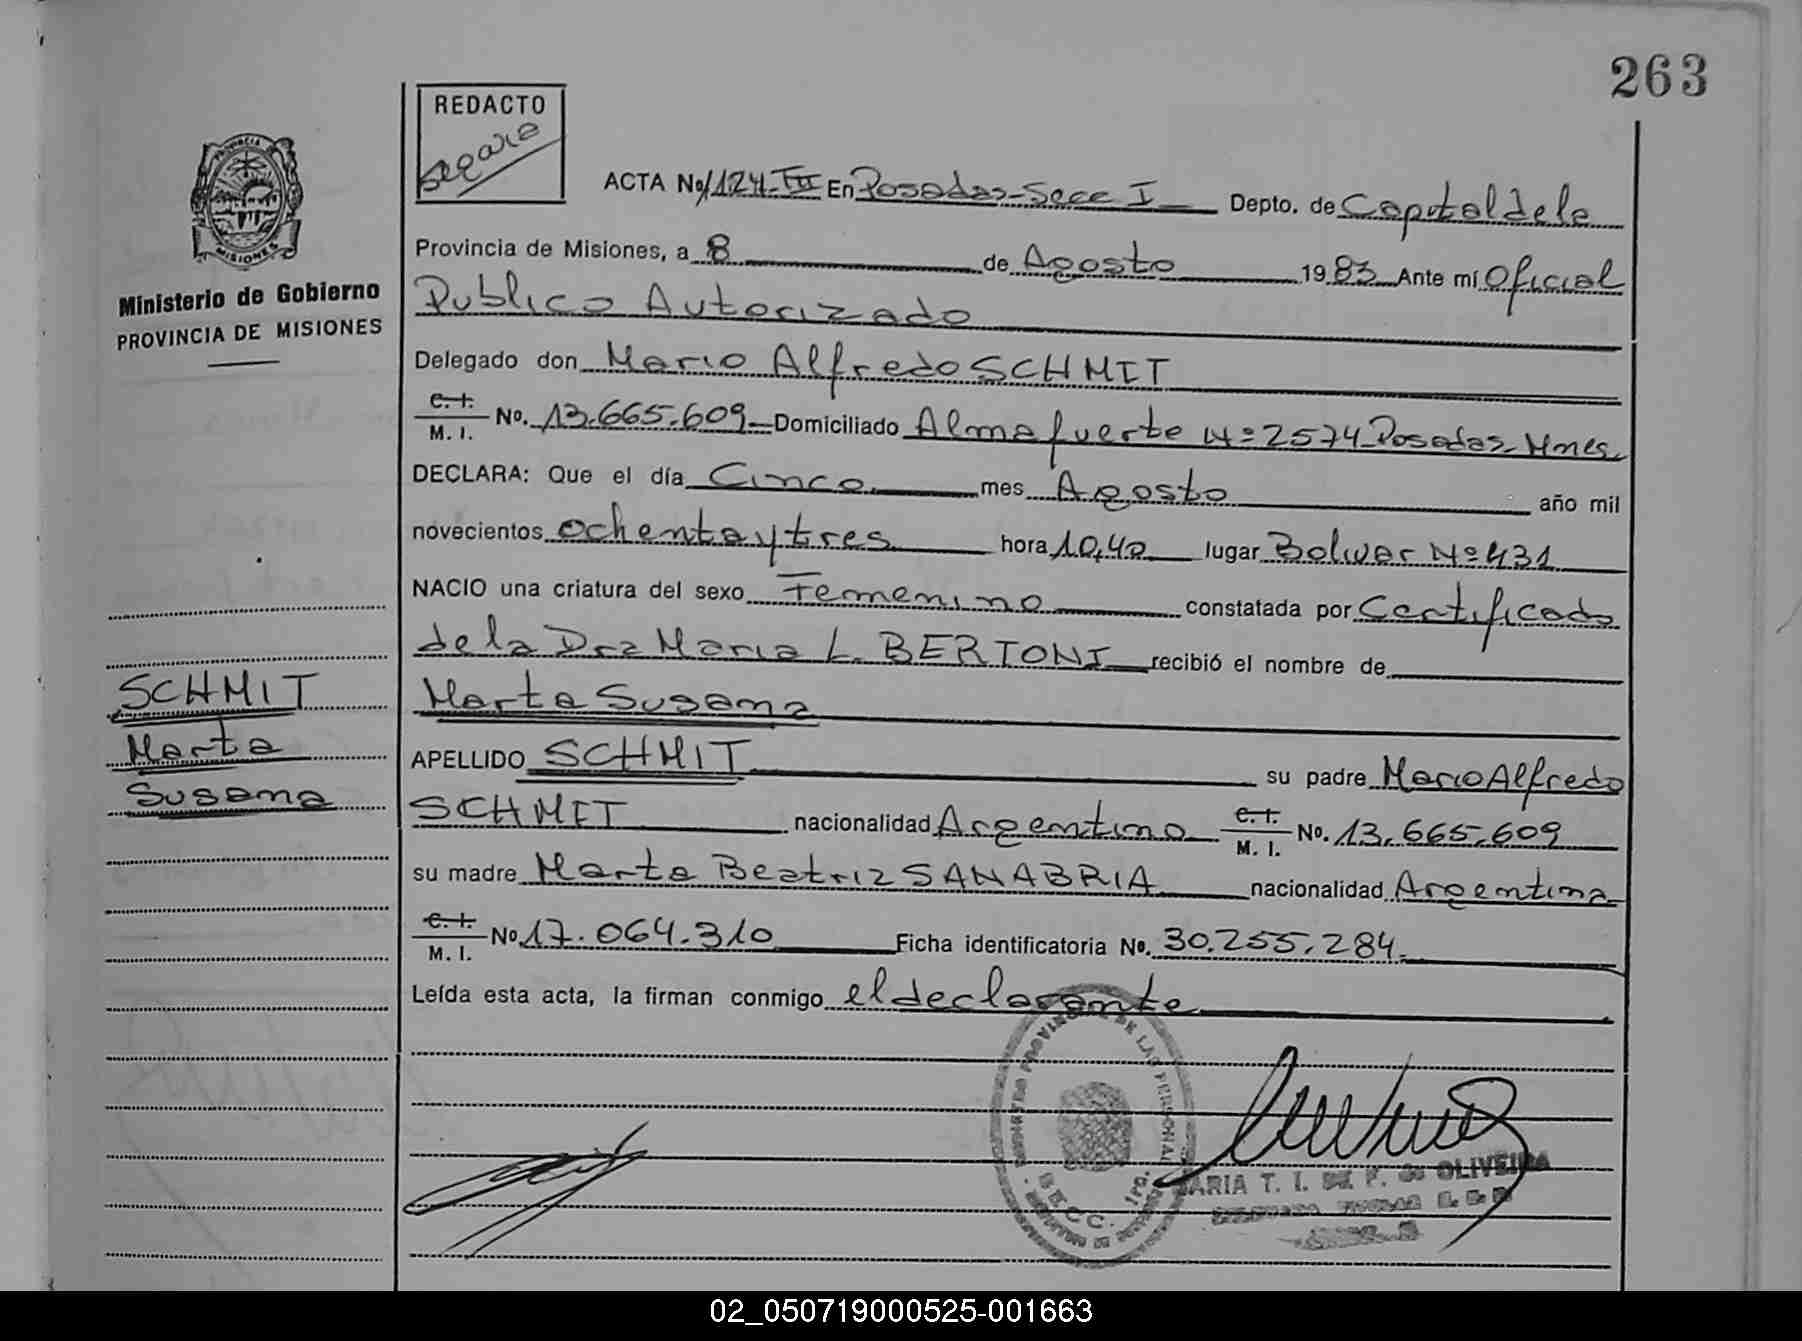 263
REDACTO
ACTA No 1124-III En Posadas-Secc I Depto. de Capital de la
Provincia de Misiones, a 8 de Agosto 1983 Ante mí Oficial
Publico Autorizado
Delegado don Mario Alfredo SCHMIT
C. I. M. I. No. 13.665.609 Domiciliado Almafuerte Nº 2574 Posadas-Mnes.
DECLARA: Que el día Cinco mes Agosto año mil
novecientos ochenta y tres hora 10,40 lugar Bolivar Nº 431
NACIO una criatura del sexo Femenino constatada por Certificado
de la Dra Maria L. BERTONI recibió el nombre de
Marta Susana
APELLIDO SCHMIT su padre Mario Alfredo
SCHMIT nacionalidad Argentino C. I. M. I. No. 13.665.609
su madre Marta Beatriz SANABRIA nacionalidad Argentina
C. I. M. I. No. 17.064.310 Ficha identificatoria No. 30.255.284
Leída esta acta, la firman conmigo el declarante
PROVINCIA
MISIONES
Ministerio de Gobierno
PROVINCIA DE MISIONES
SCHMIT
Marta
Susana
REGISTRO PROVINCIAL DE LAS PERSONAS
SECC. 1ra.
MARIA T. I. DE F. de OLIVEIRA
02_050719000525-001663